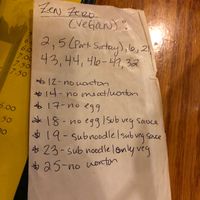 Zen Zero
(VEGAN):
2, 5 (Port. Syrtay), 6, 21
43, 44, 46-49, 32
* 12- no wonton
* 14- no meat/wonton
* 17- no egg
* 18- no egg / sub veg sauce
* 19- sub noodle / sub veg sauce
* 23- sub noodle / only veg
* 25- no wonton
5.00
.50
.00
7.50